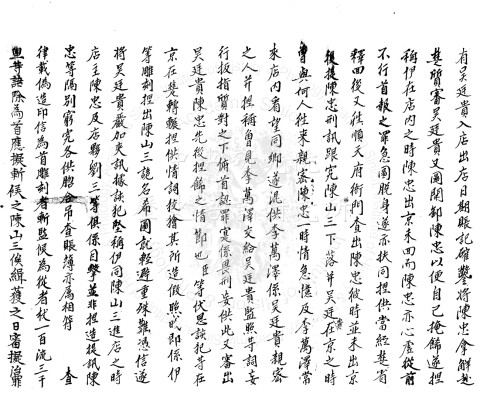 有吳廷貴入店出店日期賬記確鑿將陳忠拿解赴
楚質審吳廷貴又圖開卸陳忠以便自己掩飾遂捏
稱伊在店內之時陳忠出京未回而陳忠亦心虛從前
不行首報之罪急圖脫身遂亦扶同捏供當經楚省
釋回後又往順天府衙門查出陳忠彼時並未出京
復提陳忠刑訊跟究陳山三下落并吳廷貴在京之時
曾與何人往來親密陳忠一時情急憶及李萬澤常
來店內看望同鄉遂混供李萬澤係吳廷貴親密
之人并捏稱曾見李萬澤交給吳廷貴監照等詞妄
行扳指質對之下俯首認罪寔係畏刑妄供此又審出
吳廷貴陳忠先後捏飾之情節也臣等伏思該犯等在
京在楚轉輾捏供情詞狡獪其所造假照或即係伊
等雕刻捏出陳山三詭名希圖就輕避重殊難憑信遂
將吳廷貴嚴加夾訊據該犯堅稱伊同陳山三進店之時
店主陳忠及店夥劉三等俱係目擊並非捏造提訊陳
忠等隔別窮究各供脗合吊查賬簿亦屬相符 查
律載偽造印信為首雕刻者斬監候為從者杖一百流三千
里等語除為首應擬斬候之陳山三俟緝獲之日審擬治罪